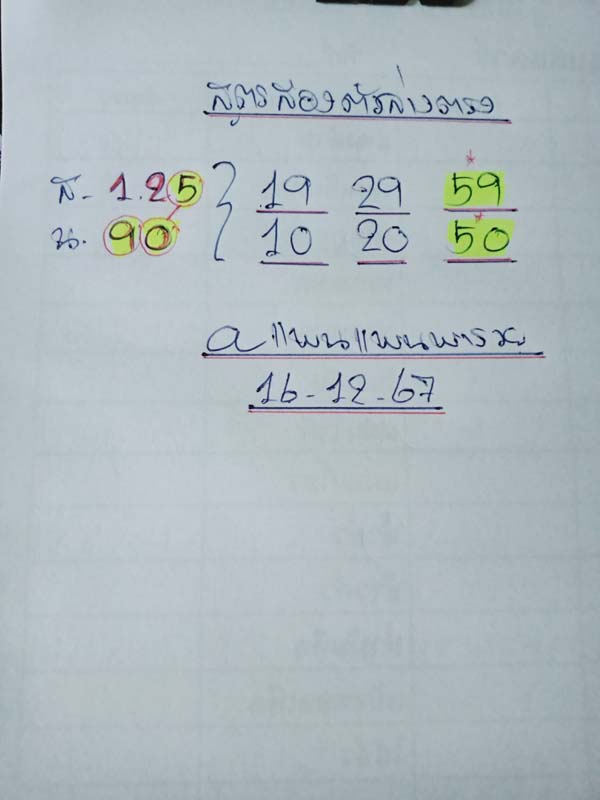 สูตรสองตัวล่างตรง
ส. 1.25 } 19 29 59
น. 90 10 20 50
a แพนแพนพารวย
16-12-67